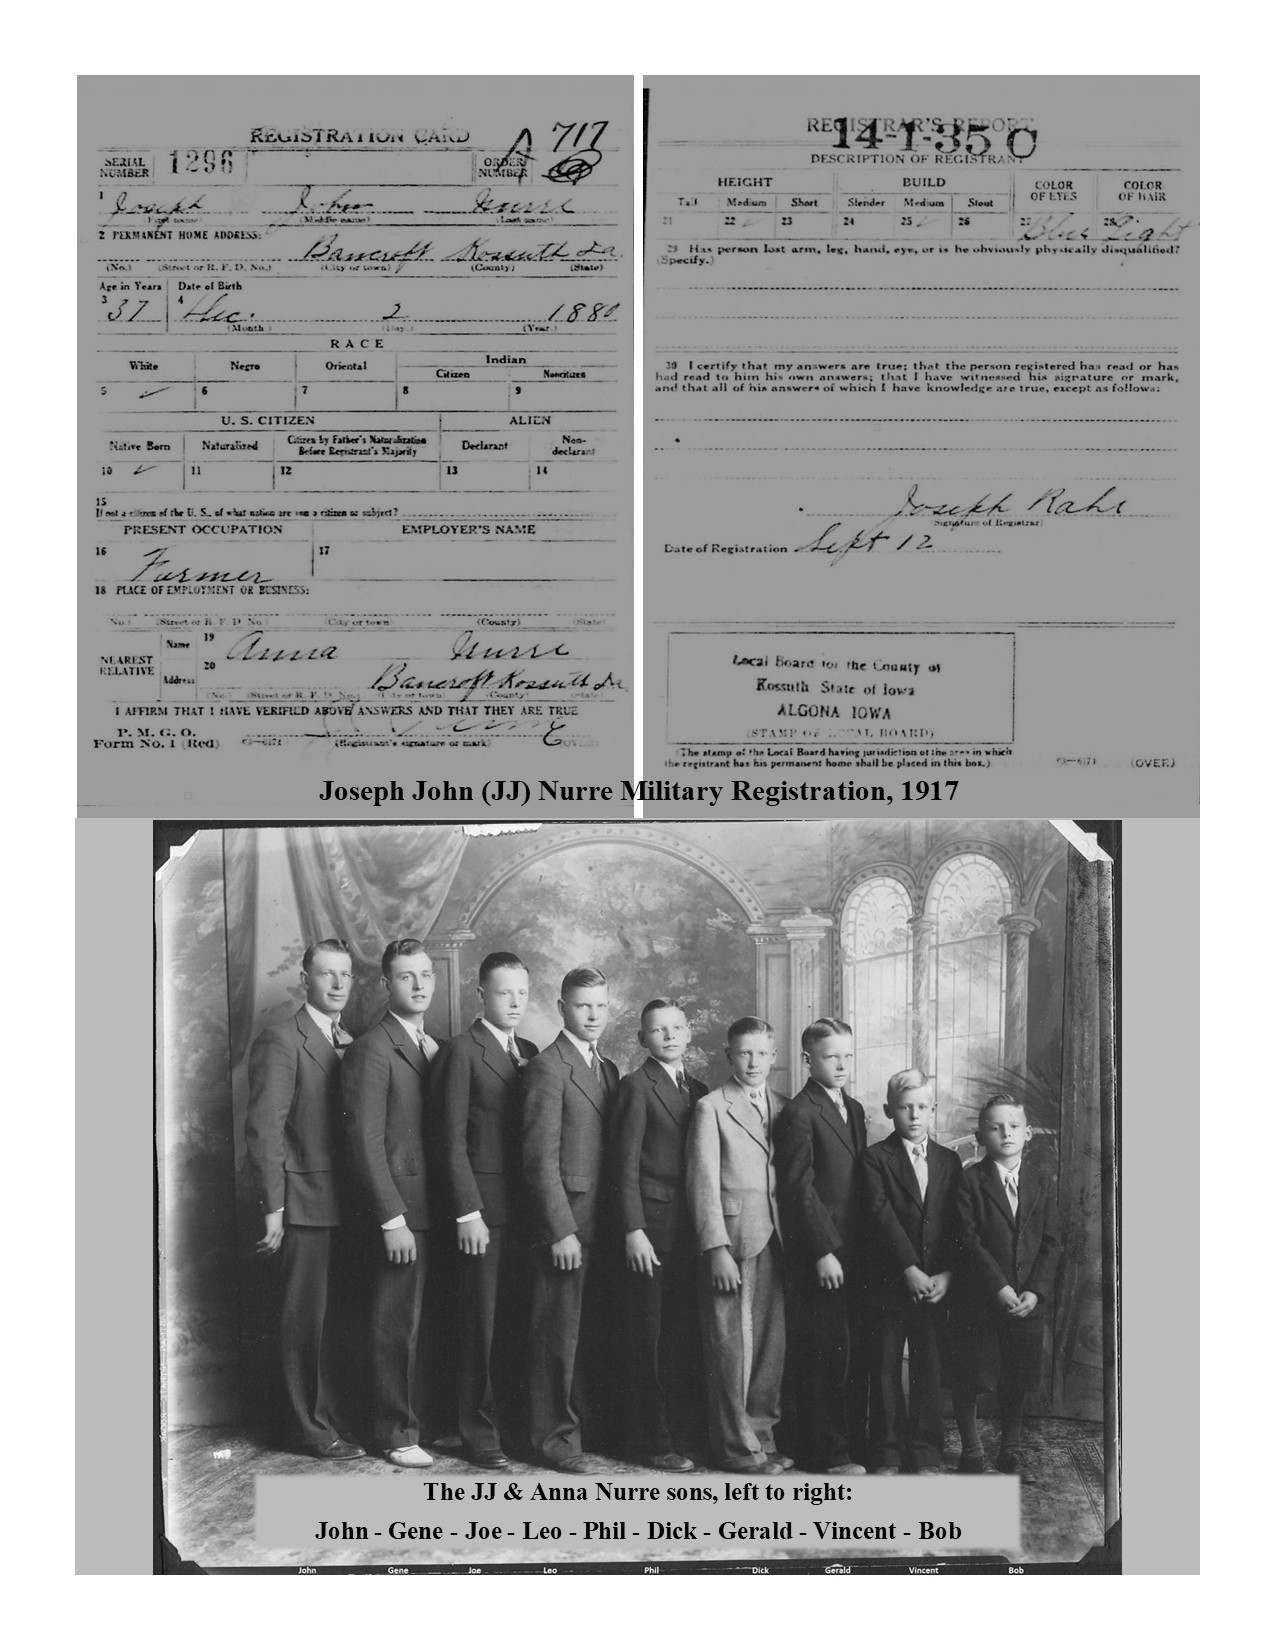 REGISTRATION CARD
A 717
SERIAL NUMBER 1296 ORDER NUMBER
1 Joseph John Nurre
(First name) (Middle name) (Last name)
2 PERMANENT HOME ADDRESS:
Bancroft Kossuth Ia.
(No.) (Street or R. F. D. No.) (City or town) (County) (State)
Age in Years Date of Birth
3 37 4 Dec. 2 1880
(Month.) (Day.) (Year.)
RACE
White Negro Oriental Indian
Citizen Noncitizen
5 ✓ 6 7 8 9
U. S. CITIZEN ALIEN
Native Born Naturalized Citizen by Father's Naturalization Before Registrant's Majority Declarant Non-declarant
10 ✓ 11 12 13 14
15
If not a citizen of the U. S., of what nation are you a citizen or subject?
PRESENT OCCUPATION EMPLOYER'S NAME
16 Farmer 17
18 PLACE OF EMPLOYMENT OR BUSINESS:
(No.) (Street or R. F. D. No.) (City or town) (County) (State)
NEAREST RELATIVE
Name 19 Anna Nurre
Address 20 Bancroft Kossuth Ia.
(No.) (Street or R. F. D. No.) (City or town) (County) (State)
I AFFIRM THAT I HAVE VERIFIED ABOVE ANSWERS AND THAT THEY ARE TRUE
P. M. G. O.
Form No. 1 (Red) (Registrant's signature or mark) (OVER)
REGISTRAR'S REPORT
14-1-35 C
DESCRIPTION OF REGISTRANT
HEIGHT BUILD COLOR OF EYES COLOR OF HAIR
Tall Medium Short Slender Medium Stout
21 22 ✓ 23 24 25 ✓ 26 27 Blue 28 Light
29 Has person lost arm, leg, hand, eye, or is he obviously physically disqualified?
(Specify.)
30 I certify that my answers are true; that the person registered has read or has
had read to him his own answers; that I have witnessed his signature or mark,
and that all of his answers of which I have knowledge are true, except as follows:
Joseph Rahe
(Signature of Registrar)
Date of Registration Sept 12
Local Board for the County of
Kossuth State of Iowa
ALGONA IOWA
(STAMP OF LOCAL BOARD)
(The stamp of the Local Board having jurisdiction of the area in which
the registrant has his permanent home shall be placed in this box.)
(OVER)
Joseph John (JJ) Nurre Military Registration, 1917
The JJ & Anna Nurre sons, left to right:
John - Gene - Joe - Leo - Phil - Dick - Gerald - Vincent - Bob
John Gene Joe Leo Phil Dick Gerald Vincent Bob